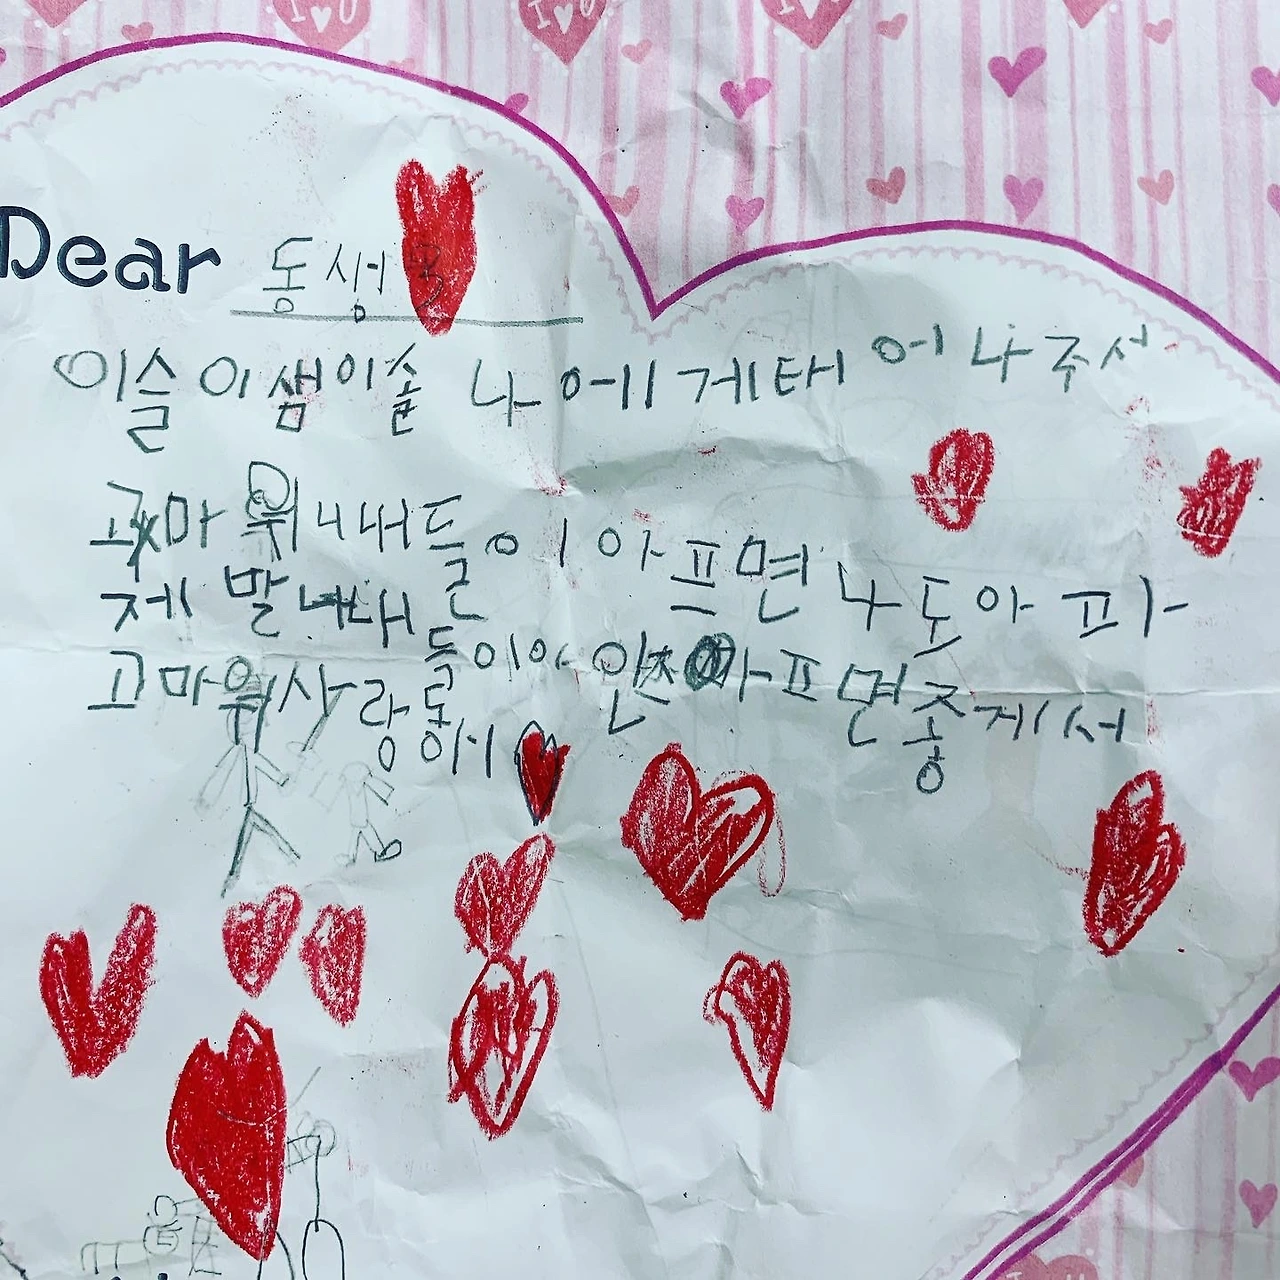 I ♥ U
I ♥ U
I ♥ U
Dear 동생
이슬 이샘이솔 나에게 태어나 주서
고마워 니내들이 아프면 나도 아파
제발 니내들이 안 아프면 좋게서
고마워 사랑 동해